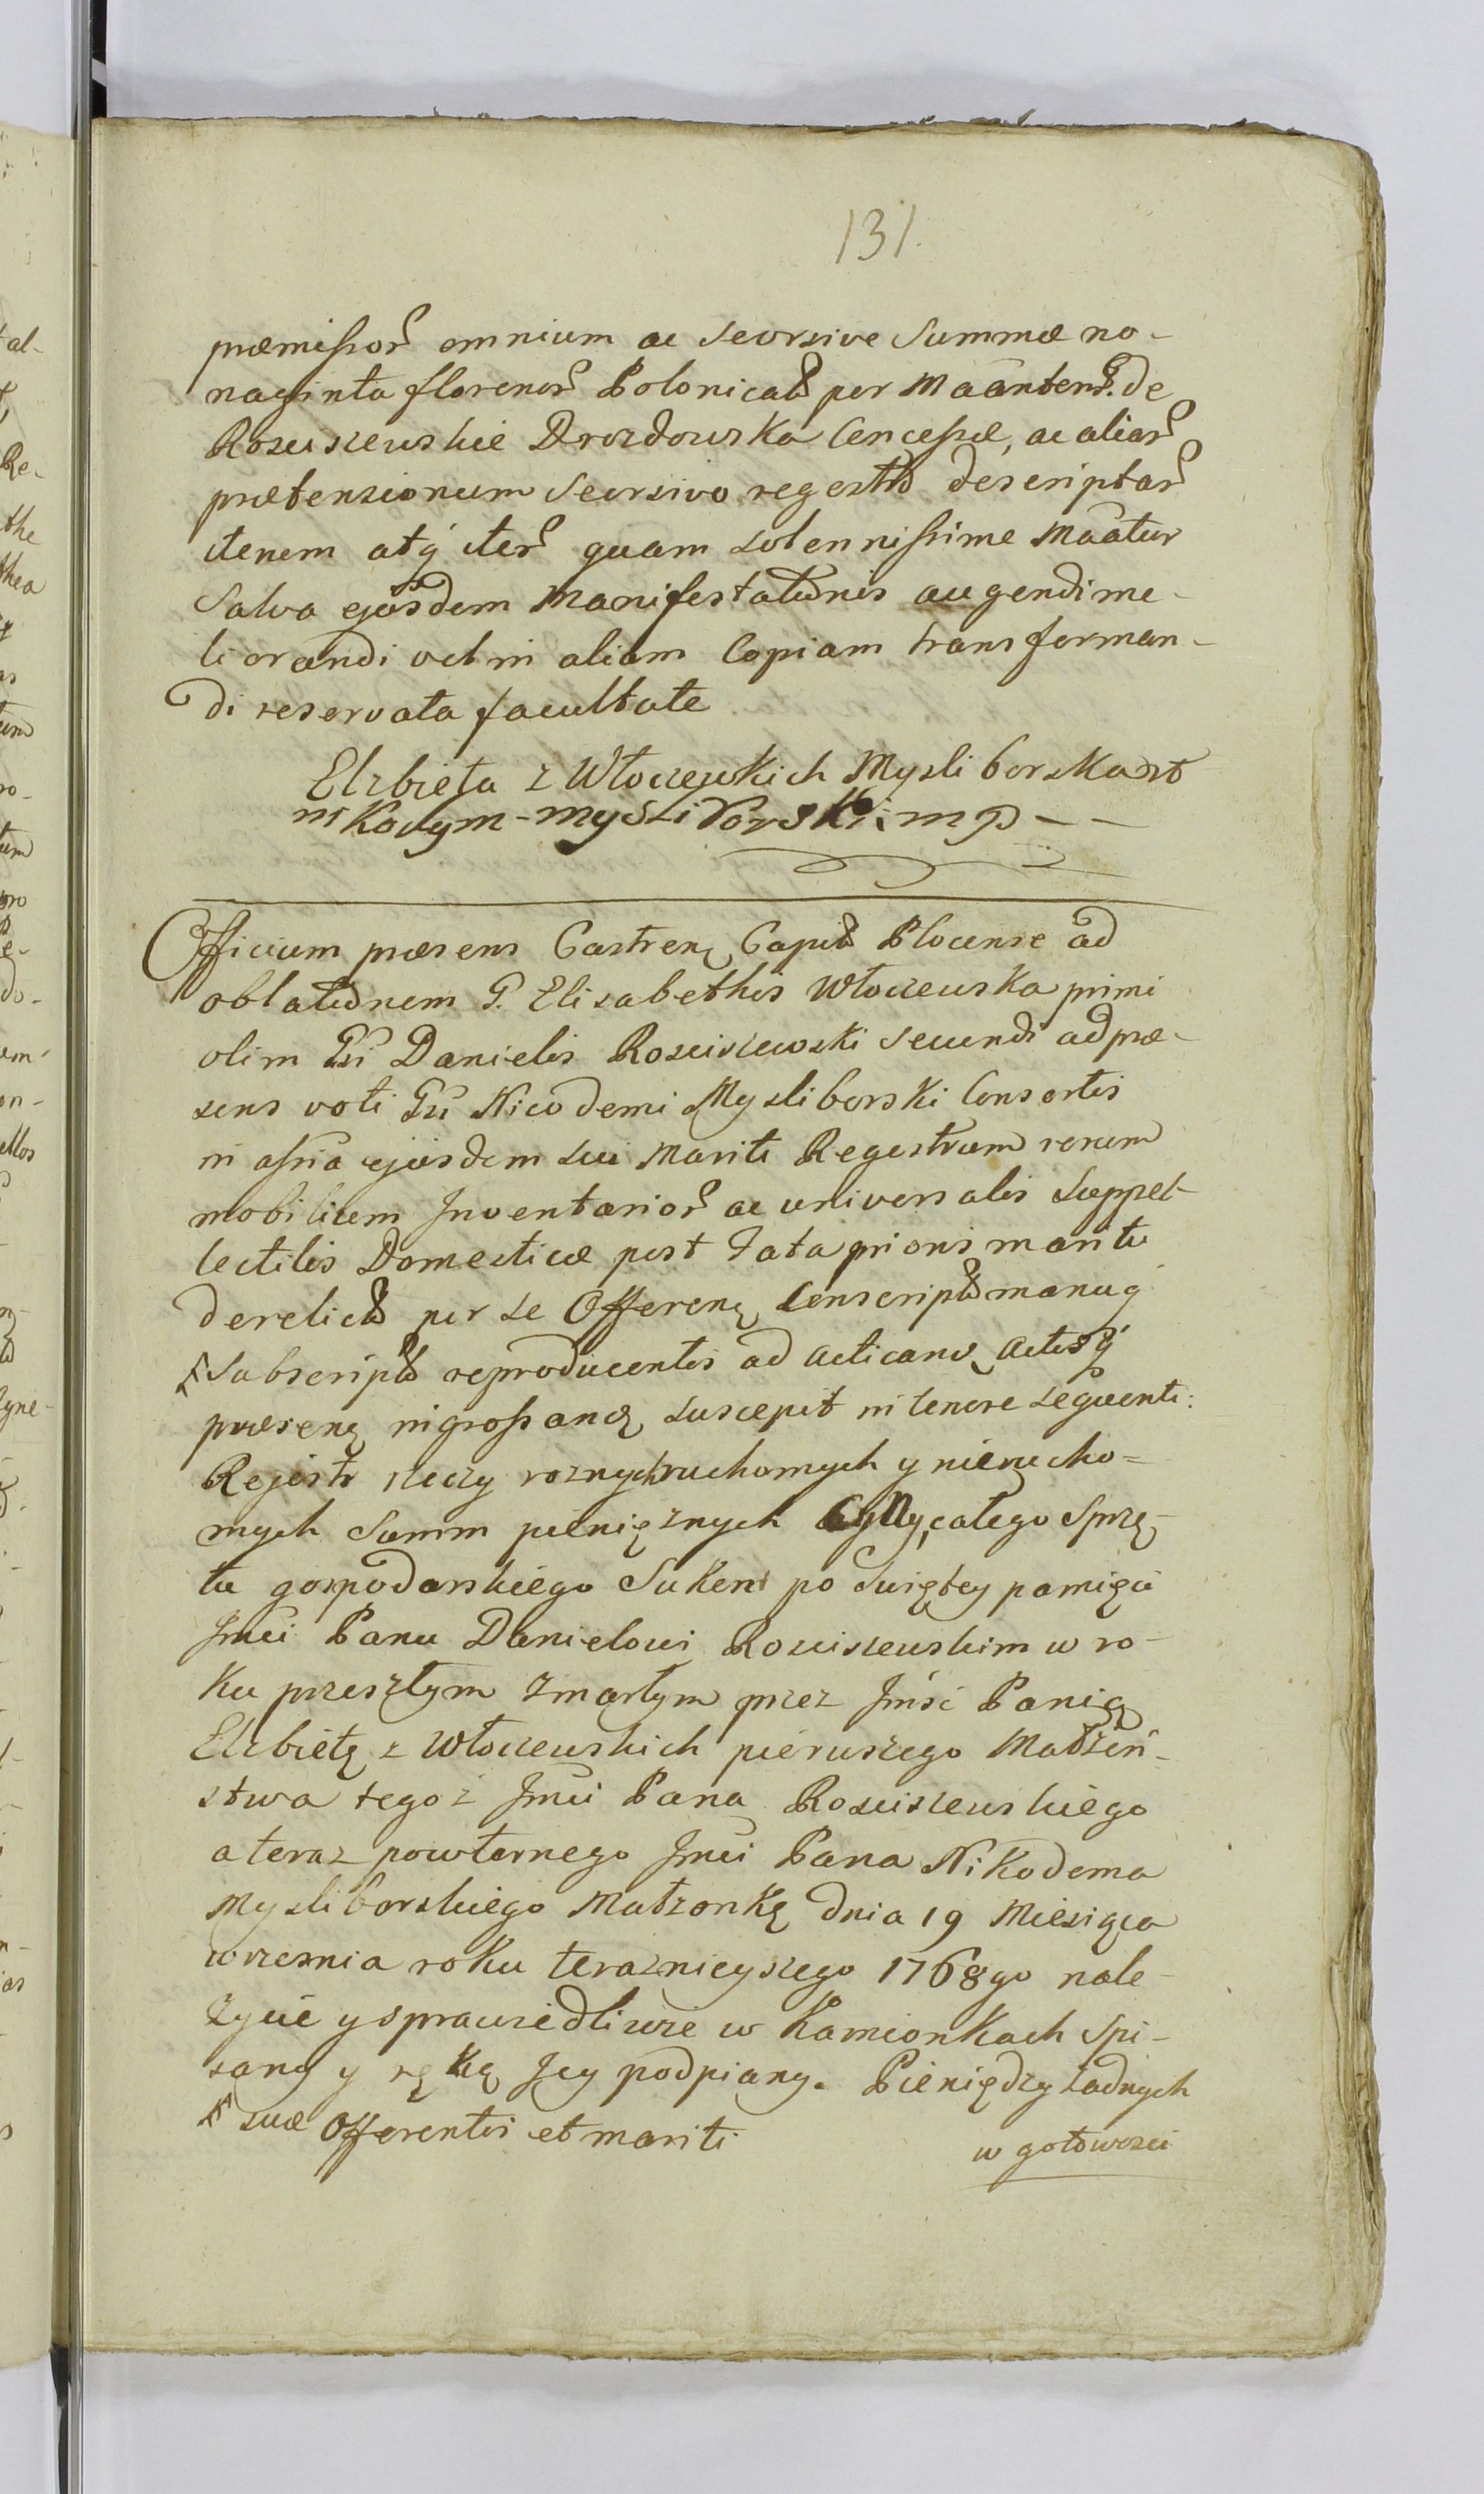 131.
præmissor omnium ac seorsive Summæ no-
naginta florenor Polonical per Maanten. de
Rosciszewskie Drozdowska Concessæ, ac aliar
prætensionum seorsivo regestro descriptar
iterum atq iter quam solennissime Maatur
Salva ejusdem Manifestationis augendi me-
liorandi vel in aliam Copiam transforman-
di reservata facultate
Elzbieta z Włoczewkich Mysliborska
nikodym-mysliborski: mp - -
Officium præsens Castren Capit Plocense ad
oblationem G. Elisabethis Włoczewska primi
olim Gsi Danielis Rosciszewski secundi ad præ-
sens voti Gsi Nicodemi Mysliborski Consortis
in assia ejusdem sui Mariti Regestrum rerum
mobilium Inventarior ac universalis suppel-
lectilis Domesticæ post Fata prioris mariti
derelict per se Offeren Conscript manuq
Subscript reproducentis ad acticand Actisq
præsen ingrossand suscepit in tenore sequenti:
Rejestr rzeczy roznych ruchomych y nierucho=
mych Summ pieniężnych Cyny, całego Sprzę-
tu gospodarskiego Sukeni po Swiętey pamięci
Jmci Panu Danielowi Rosciszewskim w ro-
ku przeszłym zmarłym przez Jmsć Panią
Elzbietę z Włoczewskich pierwszego Małżeń-
stwa tegoż Jmci Pana Rosciszewskiego
a teraz powtornego Jmci Pana Nikodema
Mysliborskiego Małzonkę dnia 19 Miesiąca
wrzesnia roku teraznieyszego 1768go nale-
życie y sprawiedliwie w Kamionkach Spi-
sany y ręką Jey podpiany. Pieniędzy żadnych
suæ Offerentis et mariti
w gotowosci